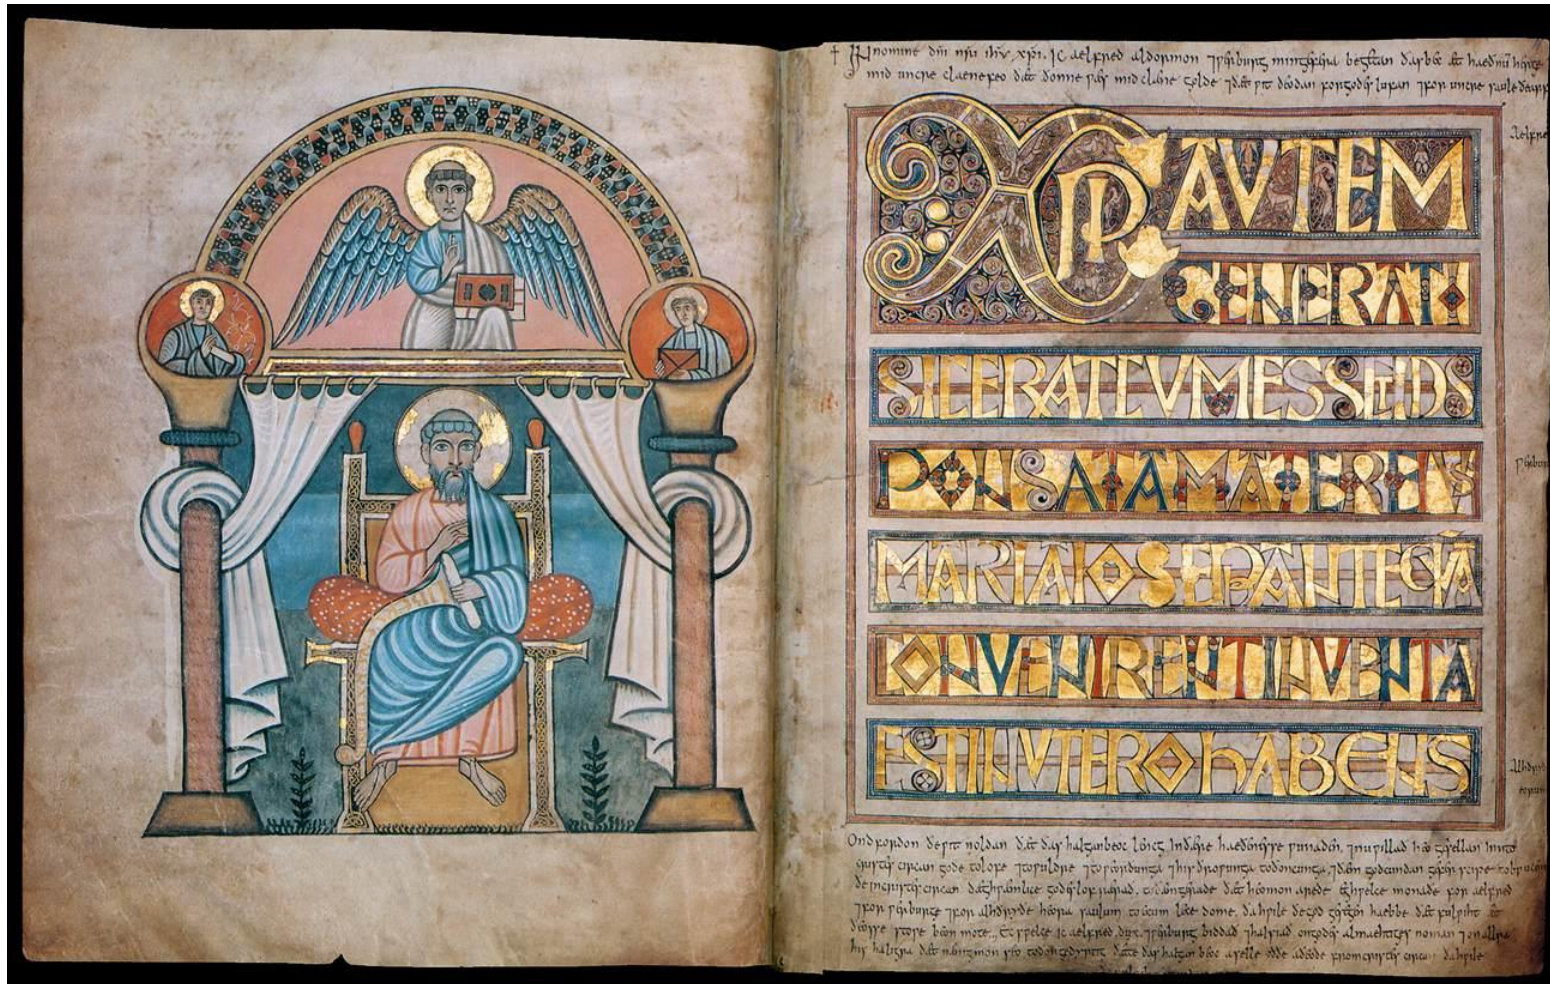 + In nomine dni nri ihu xpi. Ic aelfred aldormon 7 werburg min gefera begetan ðas bec æt haeðnum herge
mid uncre claene feo ðæt ðonne wæs mid claene golde 7 ðæt wit deodan for godes lufan 7 for uncre saule ðearfe
Aelfre
XPI AVTEM
GENERATI
SIC ERAT CVM ESSET DIS
PONSATA MATER EIVS
MARIA IOSEPH ANTEQVĀ
CONVENIRENT INVENTA
EST IN VTERO hABENS
Ond forðon ðe wit noldan ðæt ðas halgan beoc lencg in ðære haeðenesse wunaden, 7 nu willað heo gesellan inn to
cristes circan gode to lofe 7 to wuldre 7 to weorðunga 7 his ðrowunga to ðoncunga, 7 ðæm godcundan geferscipe to brucen
ðe in cristes circan dæghwæmlice godes lof rærað, to ðæm gerade ðæt heo mon arede eghwelce monaðe for aelfred
7 for werburge 7 for alhðryðe heora saulum to ecum lecedome, ða hwile ðe god gesegen haebbe ðæt fulwiht æt
ðeosse stowe beon mote. Ec swelce ic aelfred dux 7 werburg biddað 7 halsiað on godes almaehtiges noman 7 on allra
his haligra ðæt nænig mon seo to ðon gedyrstig ðætte ðas halgan beoc aselle oððe aðeode from cristes circan ða hwile